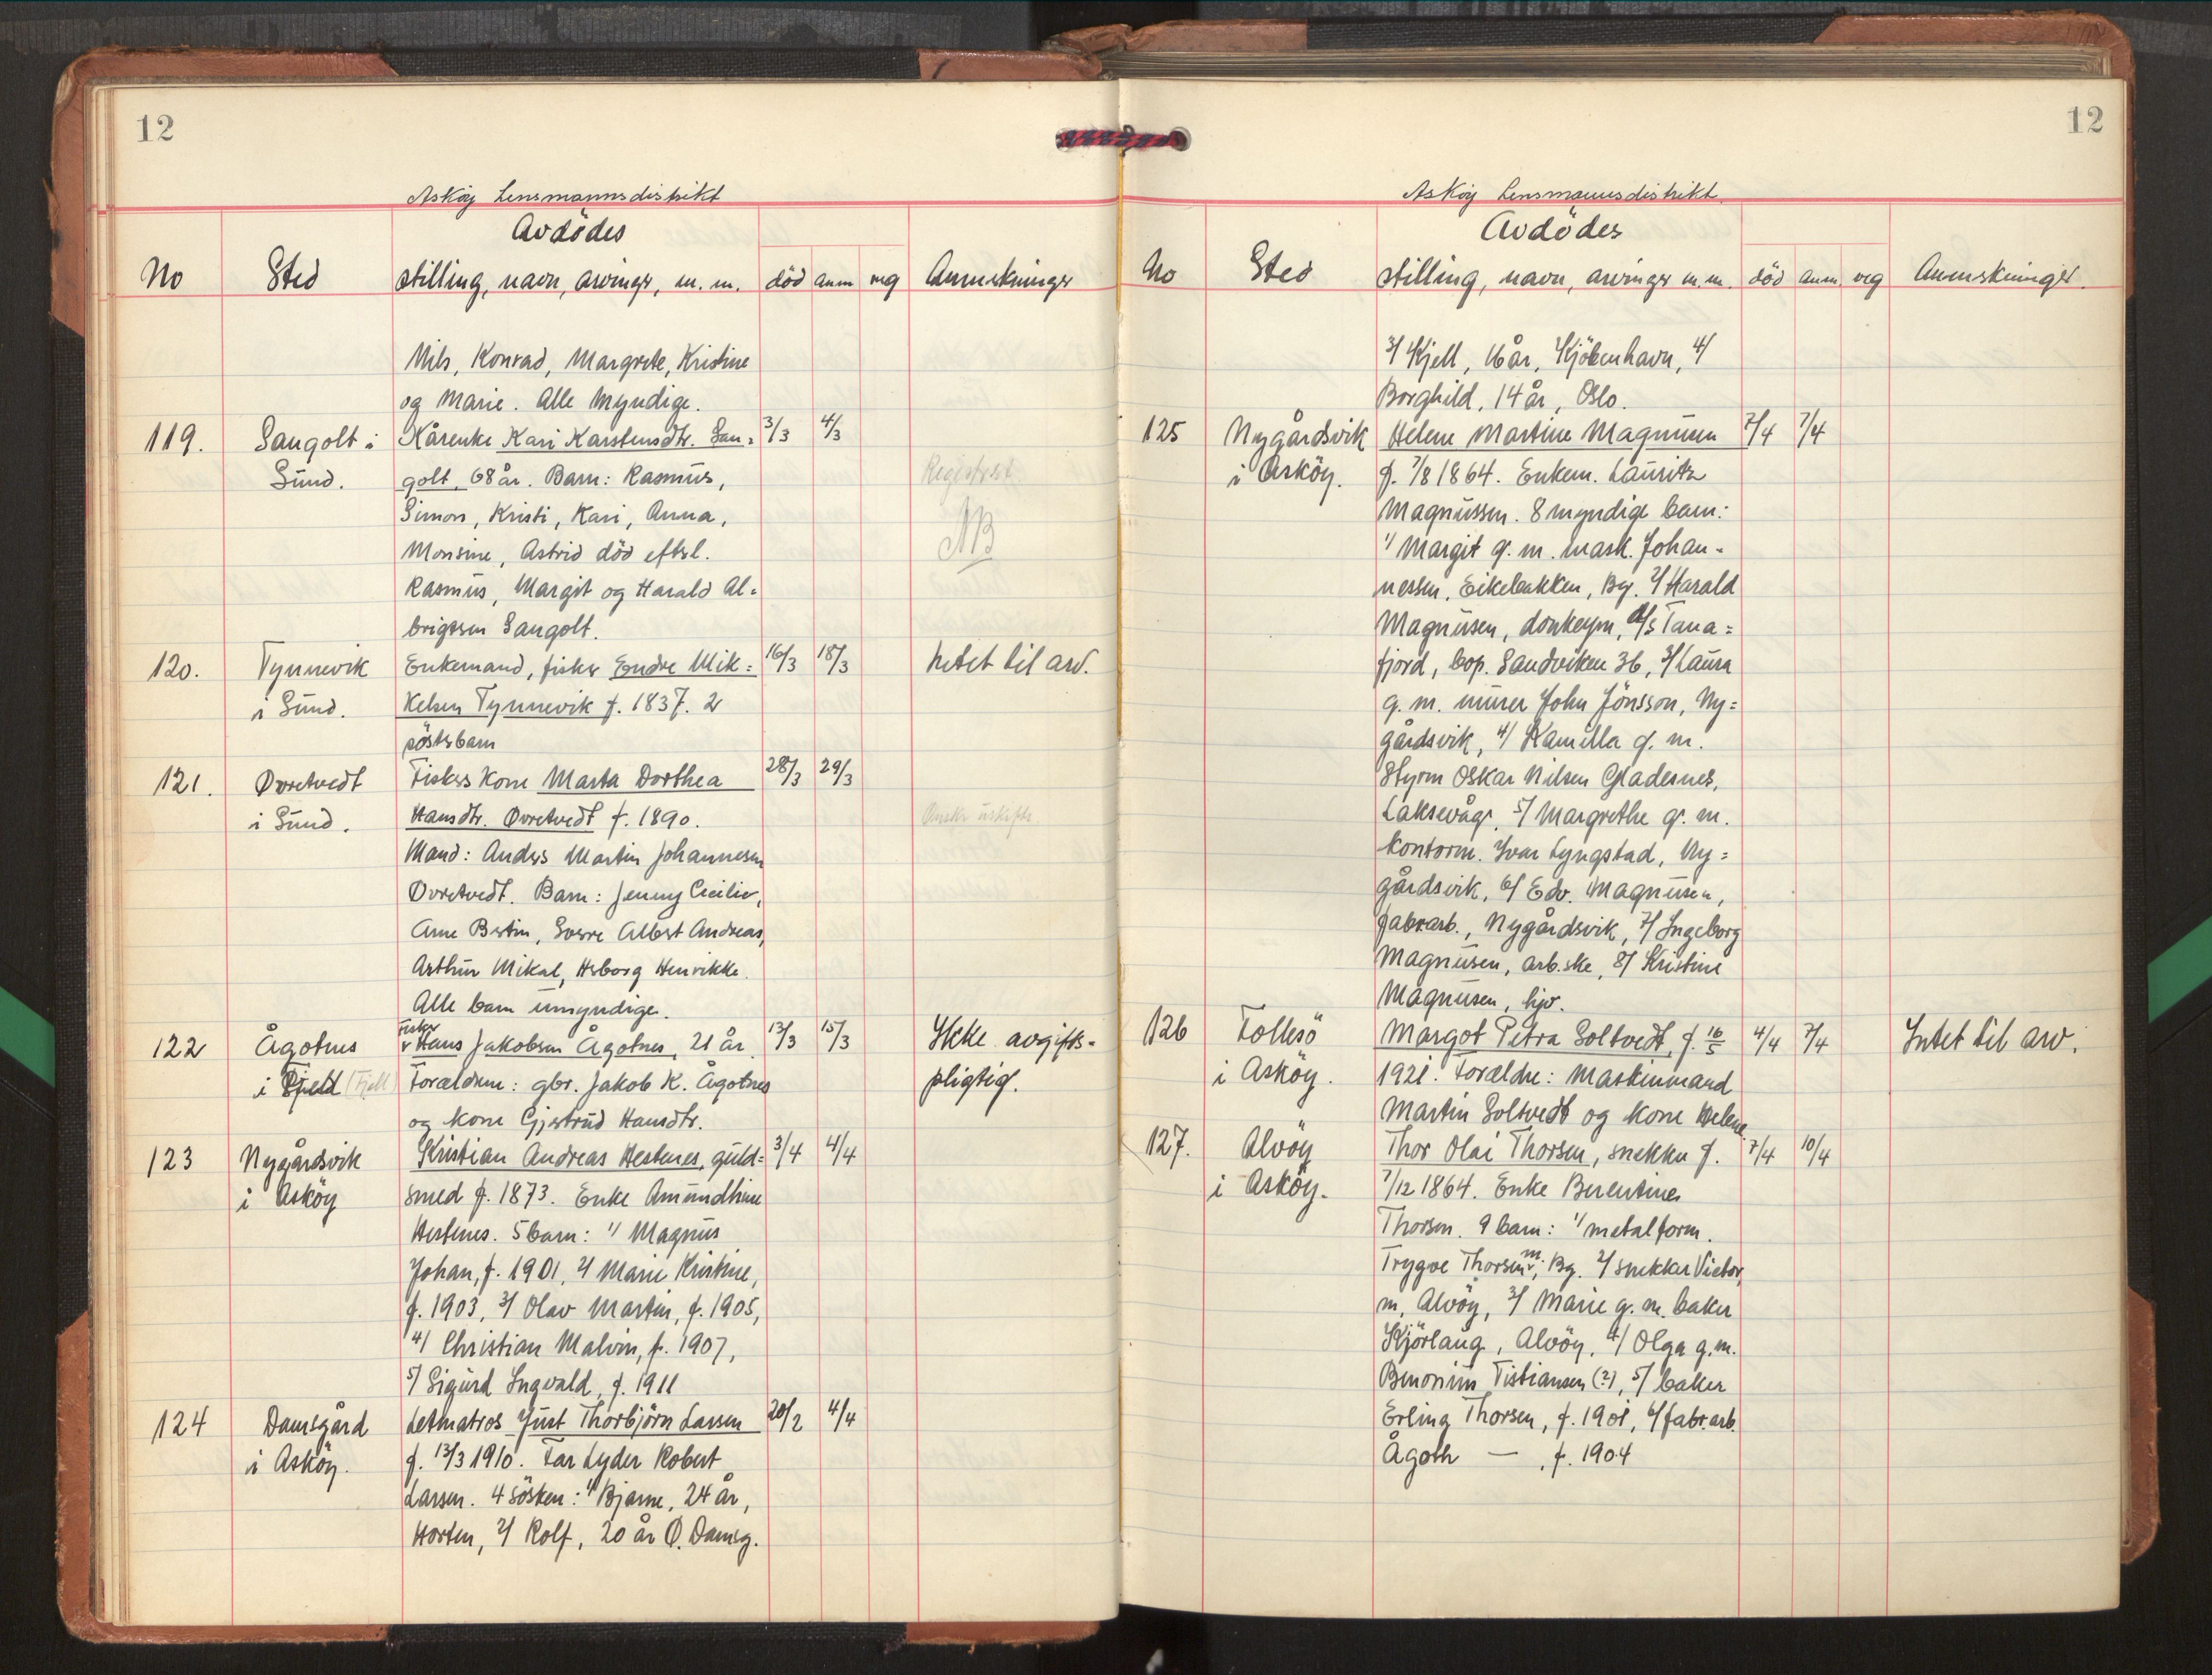 12
Asköy Lensmannsdistrikt
Avdödes
No Sted stilling, navn, arvinger, m. m. död anm reg Anmerkninger
Nils, Konrad, Margrete, Kristine
og Marie. Alle myndige.
119. Sangolt i Kårenke Kari Karstensdtr. San= 3/3 4/3
Sund. golt, 68 år. Barn: Rasmus, Registrert
Simon, Kristi, Kari, Anna, NB
Monsine, Astrid död efterl.
Rasmus, Margit og Harald Al=
brigtsen Sangolt.
120. Tynnevik Enkemand, fisker Endre Mik= 16/3 18/3 Intet til arv.
i Sund. kelsen Tynnevik f. 1837. 2
sösterbarn
121. Ovretvedt Fiskers kone Marta Dorthea 28/3 29/3
i Sund. Hansdtr. Ovretvedt f. 1890. Ønsker uskifte
Mand: Anders Martin Johannesen
Ovretvedt. Barn: Jenny Cecilie,
Arne Bertin, Sverre Albert Andreas,
Arthur Mikal, Herborg Henrikke.
Alle barn umyndige.
fisker
122 Ågotnes Hans Jakobsen Ågotnes, 21 år. 13/3 15/3 Ikke avgifts=
i Fjeld (Fjell) Forældrene: gbr. Jakob K. Ågotnes pligtig.
og kone Gjertrud Hansdtr.
123 Nygårdsvik Kristian Andreas Hestenes, guld= 3/4 4/4
i Asköy smed f. 1873. Enke Amundhine
Hestenes. 5 barn: 1/ Magnus
Johan, f. 1901, 2/ Marie Kristine,
f. 1903, 3/ Olav Martin, f. 1905,
4/ Christian Malvin, f. 1907,
5/ Sigurd Ingvald, f. 1911
124 Damsgård Letmatros Just Thorbjörn Larsen 20/2 4/4
i Asköy. f. 13/3 1910. Far Lyder Robert
Larsen. 4 sösken: 1/ Bjarne, 24 år,
Horten, 2/ Rolf, 20 år Ø. Damsg.
12
Asköy Lensmannsdistrikt.
Avdödes
No Sted stilling, navn, arvinger m.m. död anm. reg Anmerkninger.
3/ Kjell, 16 år, Kjöbenhavn, 4/
Borghild, 14 år, Oslo.
125 Nygårdsvik Helene Martine Magnusen 7/4 7/4
i Asköy. f. 7/8 1864. Enkem. Lauritz
Magnussen. 8 myndige barn:
1/ Margit g. m. mask. Johan-
nessen, Eikebakken, Bg. 2/ Harald
Magnusen, donkeym, d/s Tana=
fjord, bop. Sandviken 36, 3/ Laura
g. m. murer John Jönsson, Ny=
gårdsvik, 4/ Kamilla g. m.
Styrm Oskar Nilsen Gladesnes,
Laksevåg, 5/ Margrethe g. m.
kontorm. Ivar Lyngstad, Ny=
gårdsvik, 6/ Edv. Magnusen,
fabr.arb., Nygårdsvik, 7/ Ingeborg
Magnusen, arb.ske, 8/ Kristine
Magnusen, hjv.
126 Follesö Margot Petra Soltvedt, f. 16/5 4/4 7/4 Intet til arv.
i Asköy. 1921. Forældre: Maskinmand
Martin Soltvedt og kone Helene.
127. Alvöy Thor Olai Thorsen, snekker f. 7/4 10/4
i Asköy. 7/12 1864. Enke Berentine
Thorsen. 9 barn: 1/ metalform.
Trygve Thorsen, m, Bg. 2/ snekker Victor,
m, Alvöy, 3/ Marie g. m. baker
Kjörlaug, Alvöy, 4/ Olga g. m.
Benonius Tistiansen (?), 5/ baker
Erling Thorsen, f. 1901, 6/ fabr.arb.
Ågoth — , f. 1904